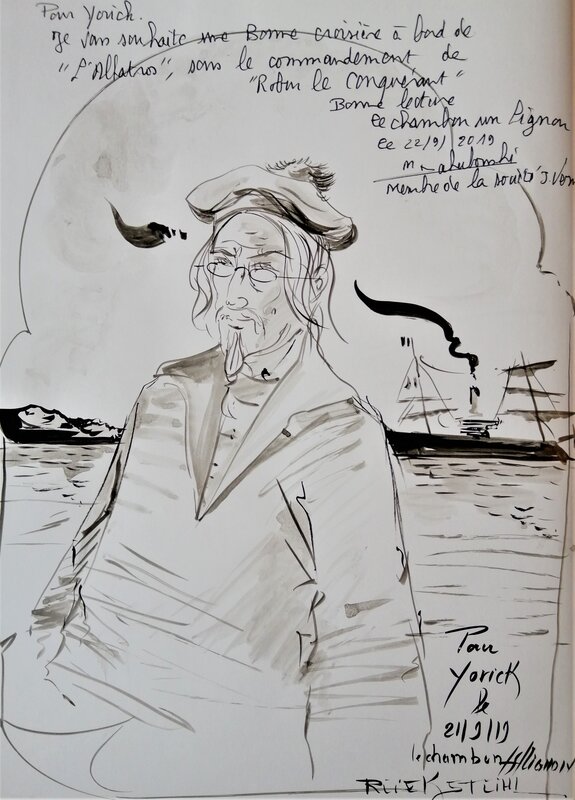 Pour Yorick.
Je vous souhaite une Bonne croisière à bord de
"L'Albatros", sous le commandement de
"Robur le Conquérant"
Bonne lecture
Le chambon sur Lignon
le 22/9/2019
membre de la société J Verne
Pour
Yorick
le
21/9/19
le chambon s/Lignon